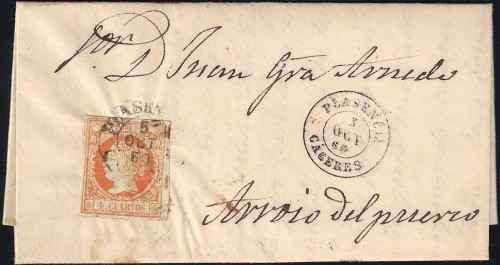 por
D Juan Gra Arnedo
PLASENCIA
5
OCT
60
CACERES
PLASEN
5
OCT
60
4 CUARTOS
Arroio del puerco